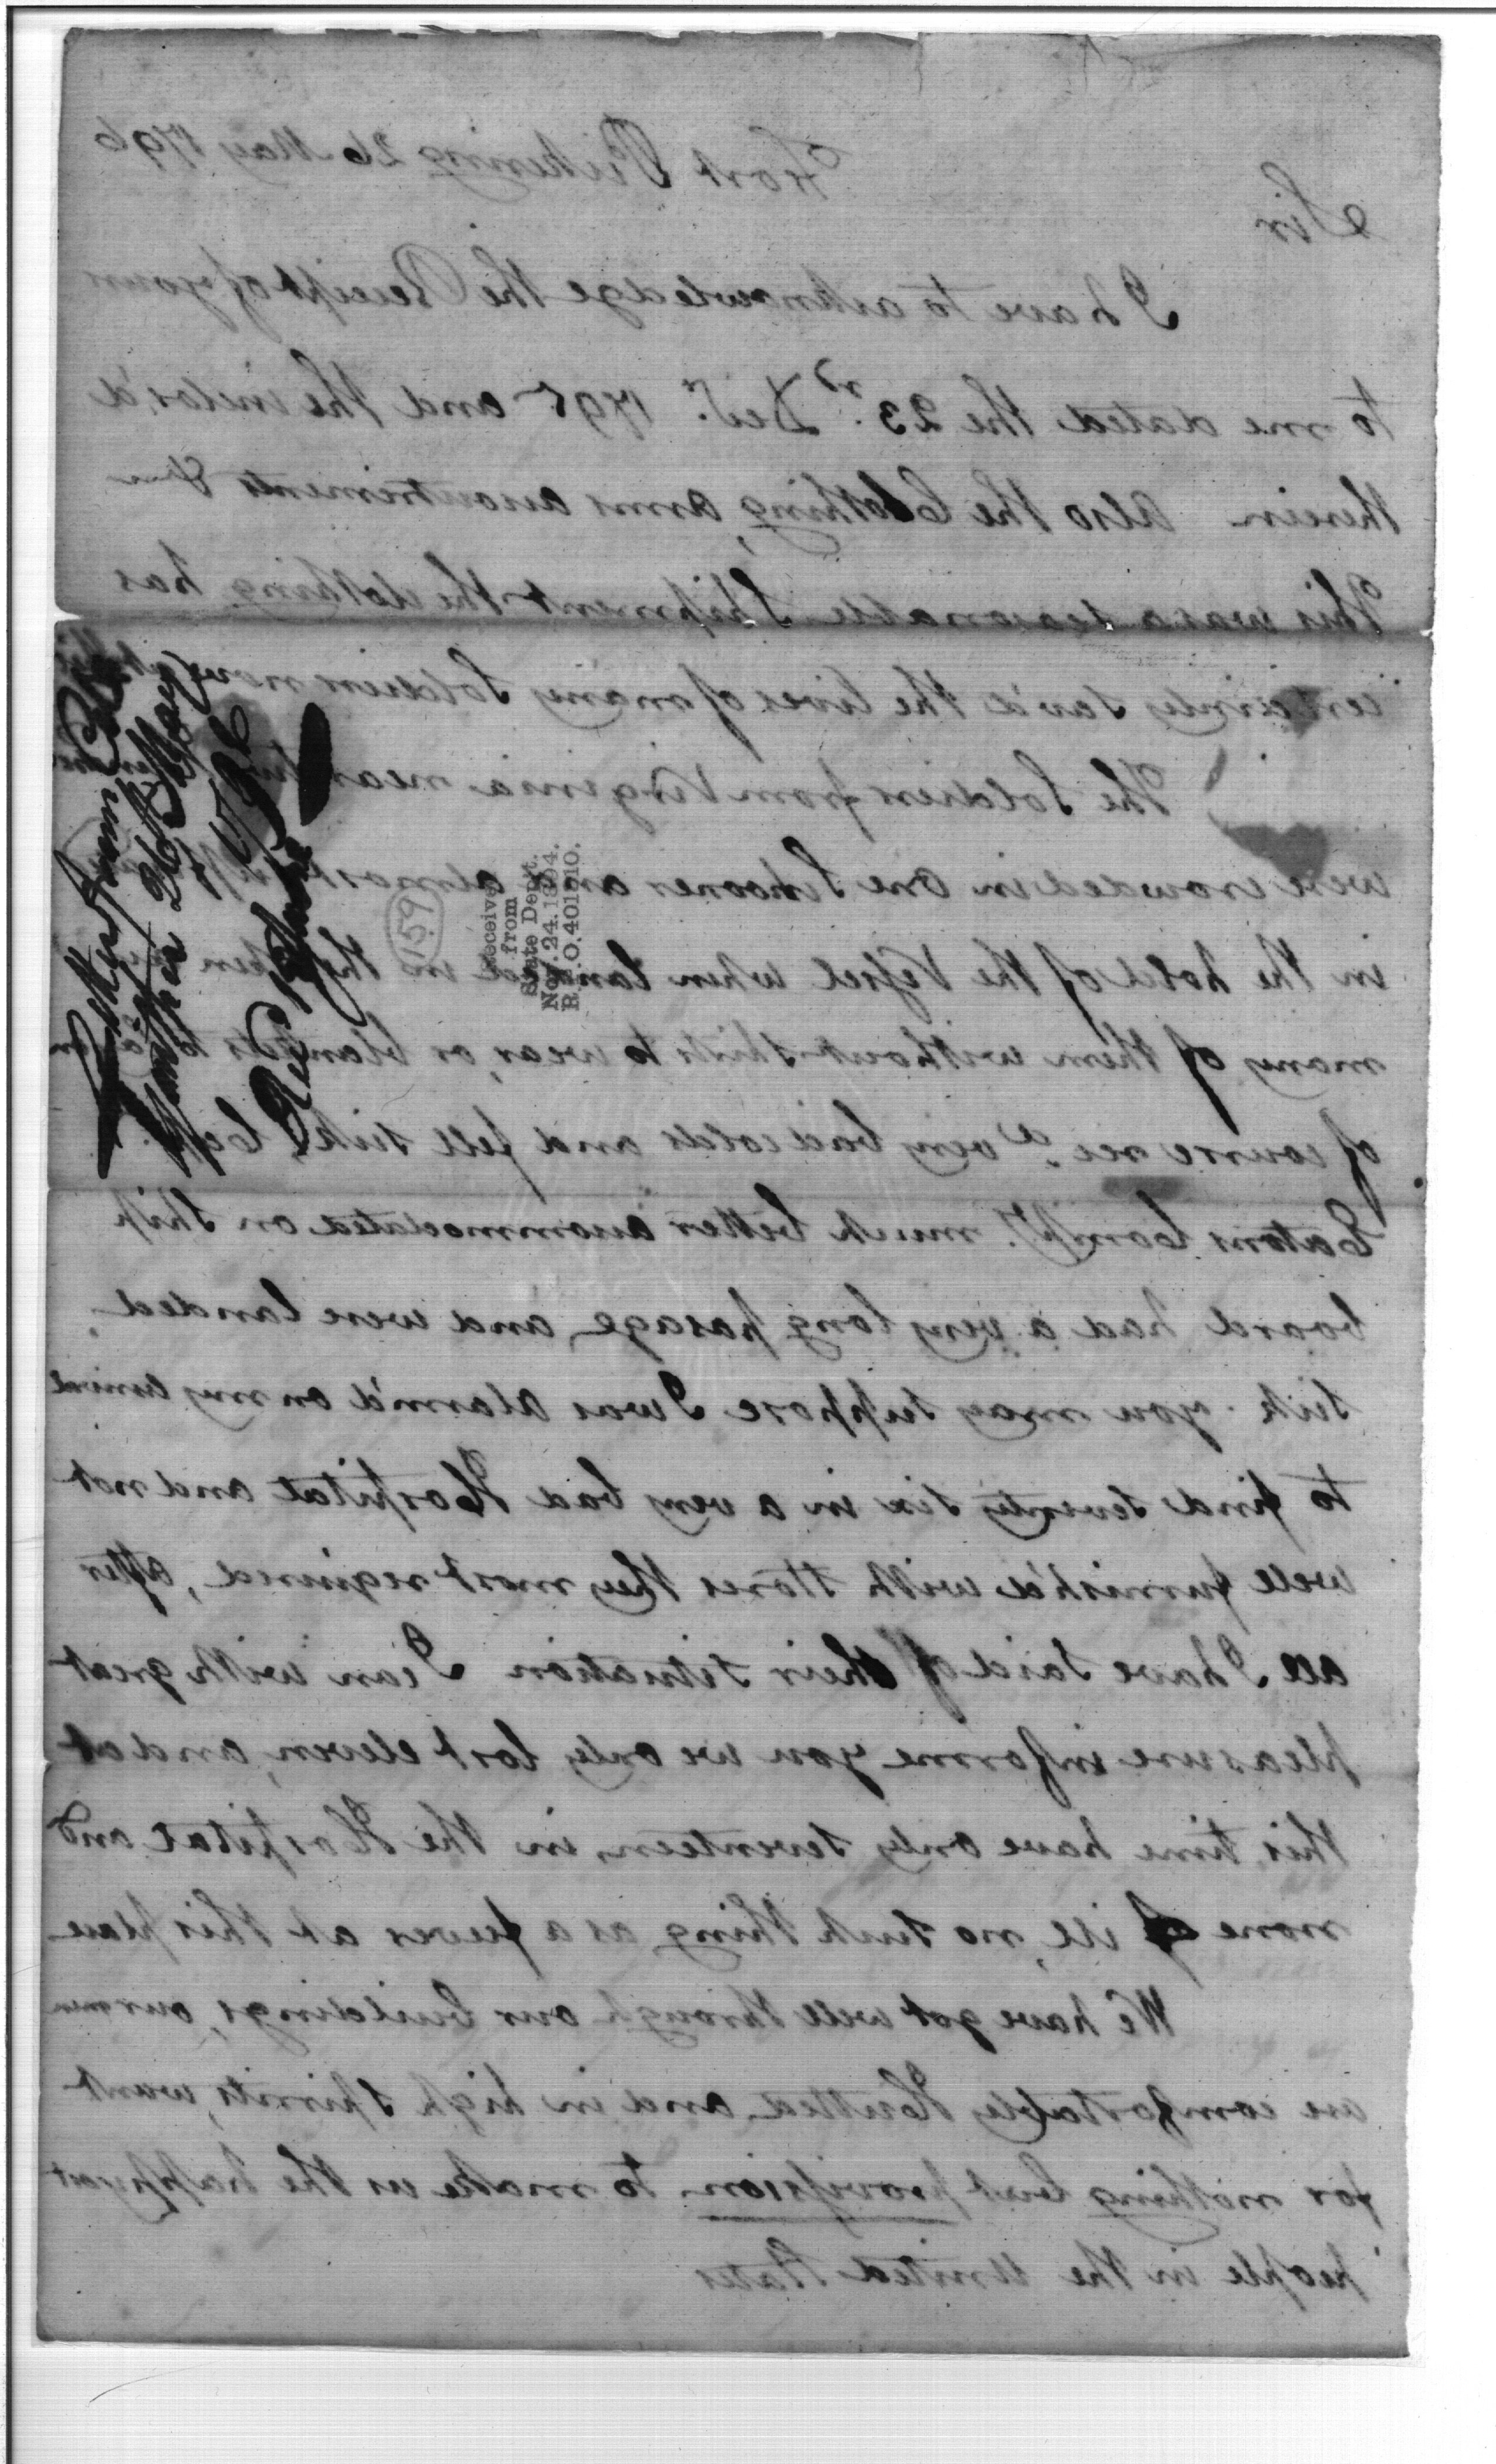 Fort Pickering 26 May 1796
Sir
I have to acknowledge the Receipt of yours
to me dated the 23.d Decr. 1795 and the inclos'd
therein also the Clothing, arms accoutrements &c
This was a seasonable Shipment the clothing has
certainly sav'd the lives of many Soldiers now
The Soldiers from Virginia near
were crowded in one Schooner an almost
in the hold of the Vessel when landed in the
many of them without shirts to wear, or blankets to
of course recd. very bad colds and fell sick, Capt.
Eatons Compy. much better accommodated on Ship
board had a very long pasage and were landed
sick. you may suppose I was alarm'd on my arrival
to find seventy six in a very bad Hospital and not
well furnish'd with stores they most required, after
all I have said of their situation I can with great
pleasure informe you we only lost eleven, and at
this time have only seventeen in the Hospital and
none ill, no such thing as a feever at this place
We have got well through our buildings, our men
are comfortably Hutted and in high spirrits, want
for nothing but provission to make us the happyest
people in the United States
26th May
1796
159
Received
from
State Dept.
Nov. 24. 1894.
R. O. 401010.